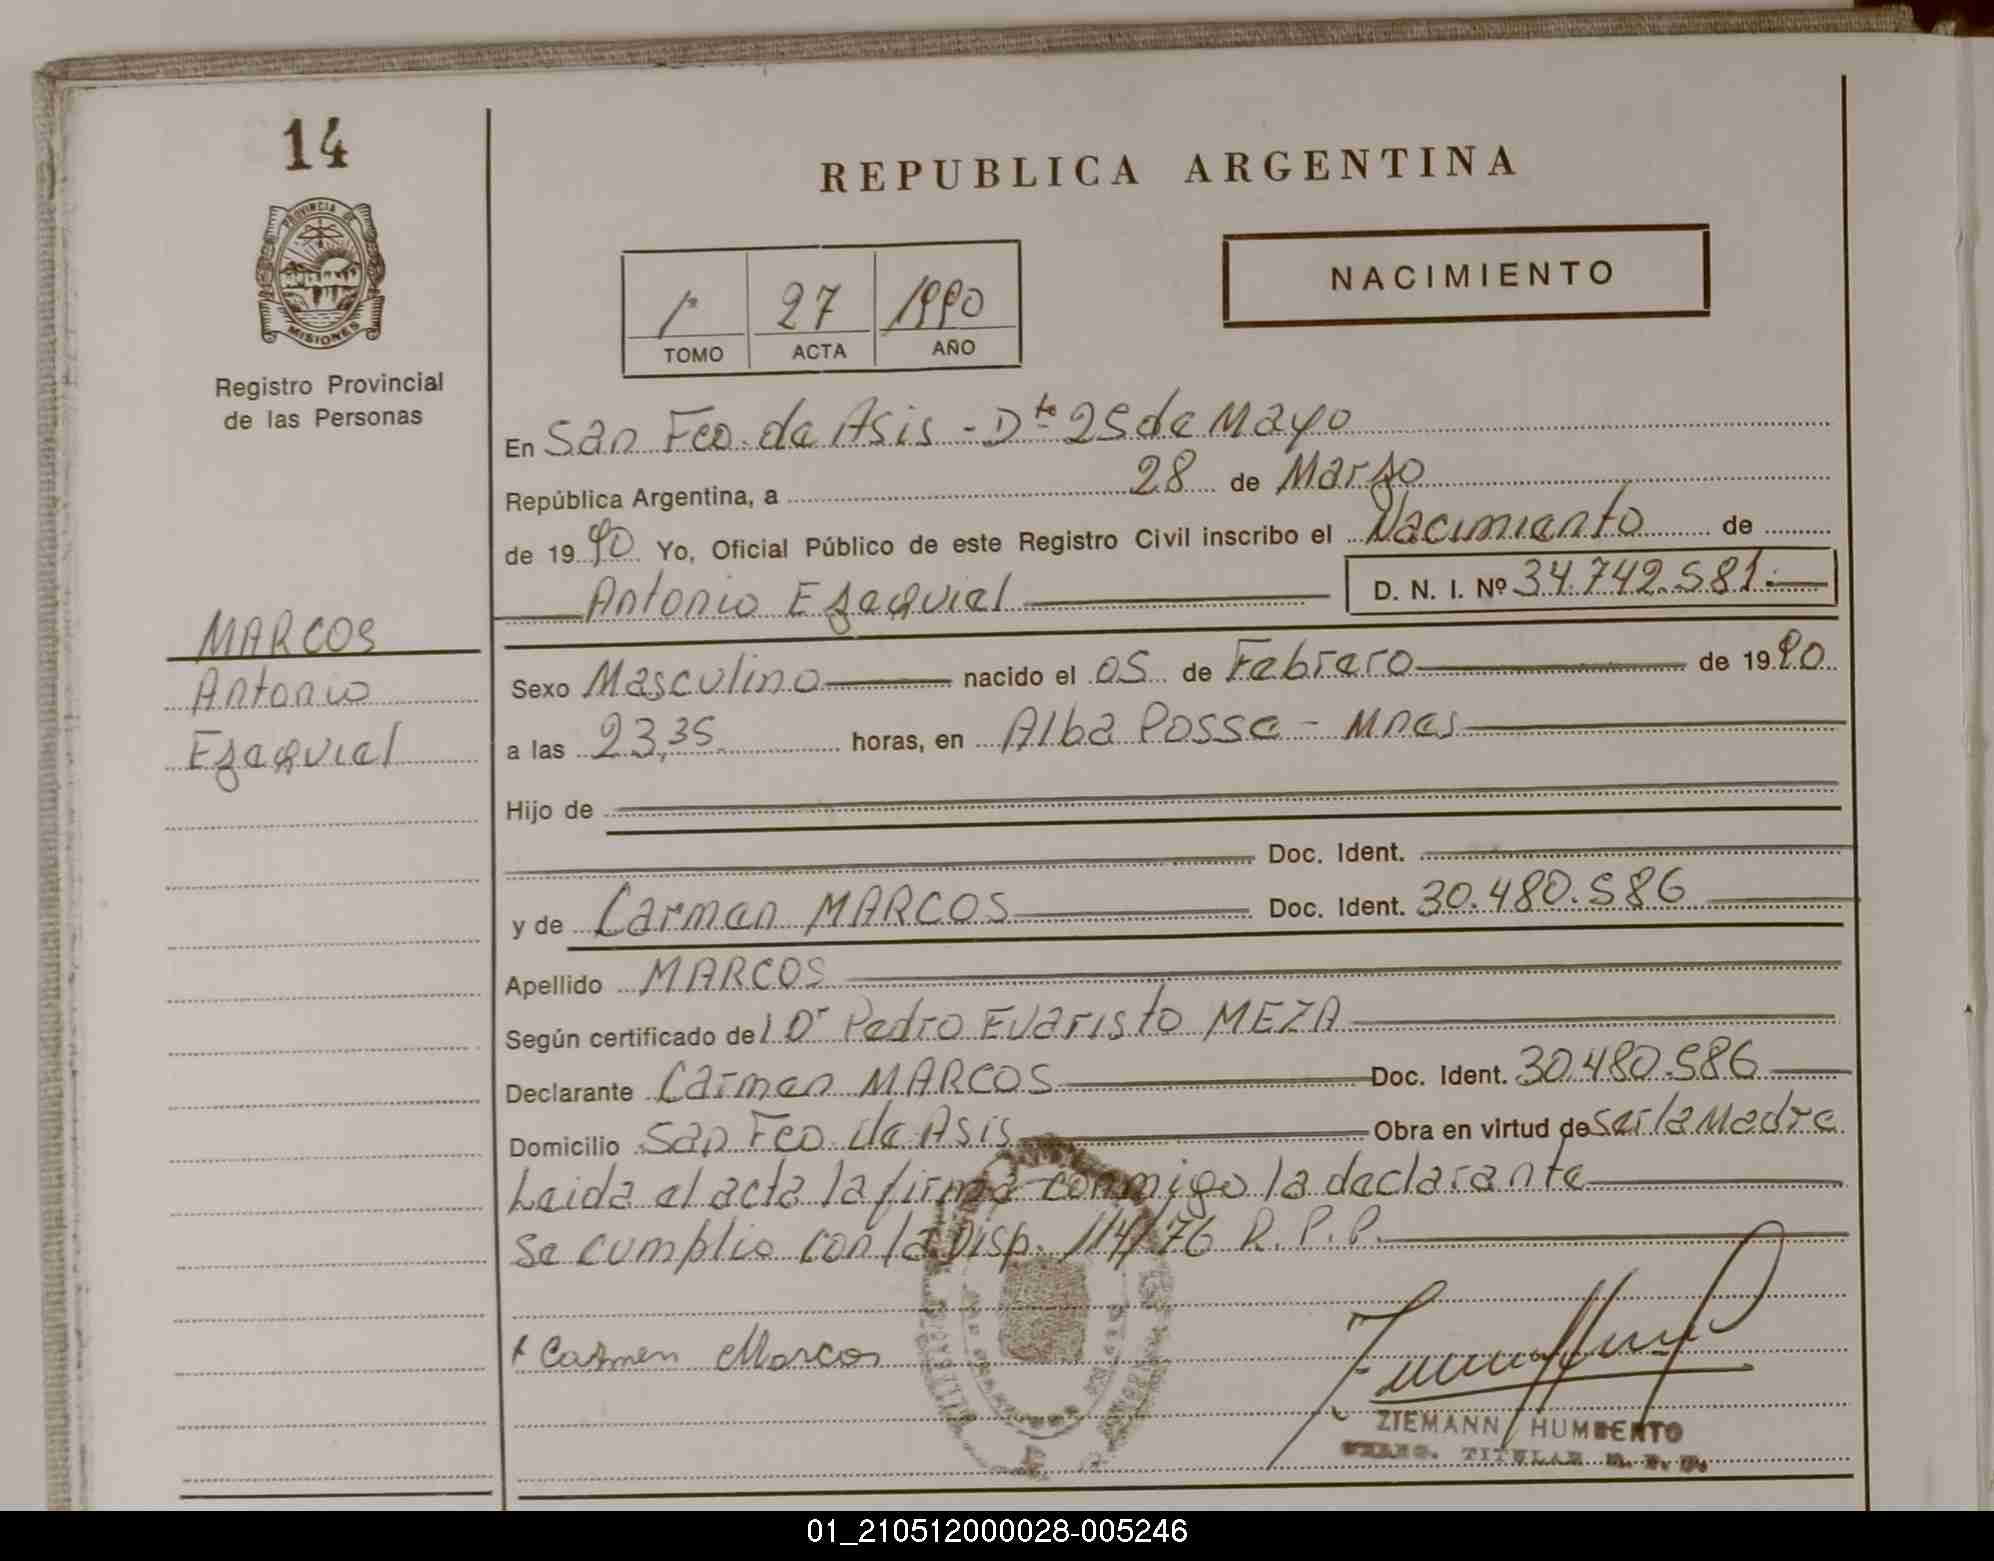 14
PROVINCIA DE
MISIONES
Registro Provincial
de las Personas
REPUBLICA ARGENTINA
NACIMIENTO
1º 27 1990
TOMO ACTA AÑO
En San Fco. de Asis - Dto 25 de Mayo
República Argentina, a 28 de Marzo
de 1990 Yo, Oficial Público de este Registro Civil inscribo el Nacimiento de
Antonio Ezequiel D. N. I. Nº 34.742.581.
MARCOS
Antonio
Ezequiel
Sexo Masculino nacido el 05 de Febrero de 1990
a las 23,35 horas, en Alba Posse - Mnes
Hijo de
Doc. Ident.
y de Carmen MARCOS Doc. Ident. 30.480.586
Apellido MARCOS
Según certificado del Dr Pedro Evaristo MEZA
Declarante Carmen MARCOS Doc. Ident. 30.480.586
Domicilio San Fco de Asis Obra en virtud de ser la Madre
Leida el acta la firma conmigo la declarante
Se cumplio con la Disp. 114/76 R.P.P.
Carmen Marcos
ZIEMANN HUMBERTO
TITULAR
01_210512000028-005246